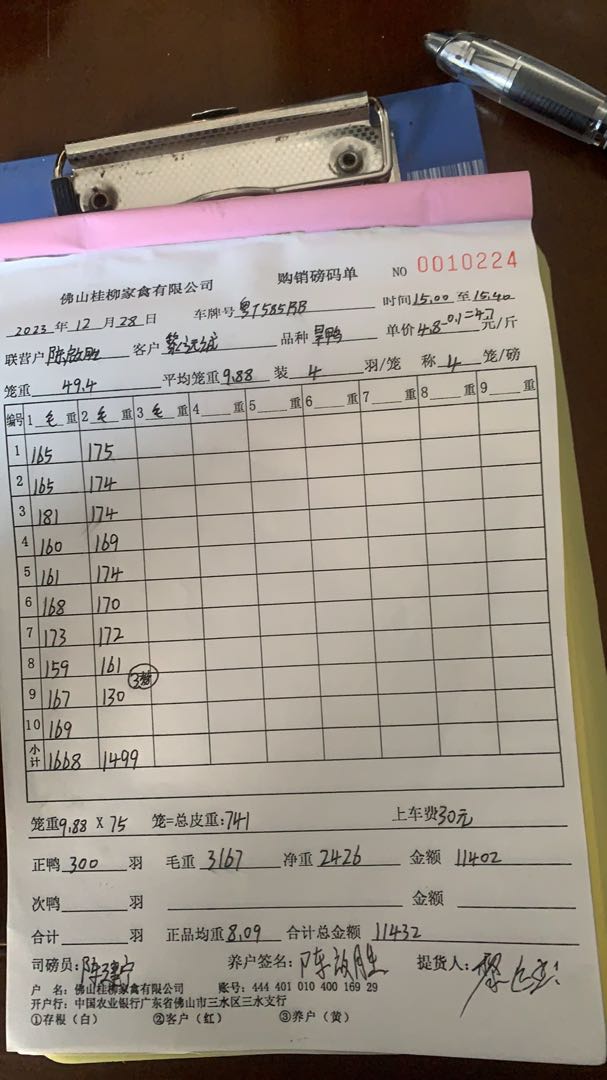 佛山桂柳家禽有限公司 购销磅码单 NO 0010224
2023年12月28日 车牌号粤T585BB 时间15.00至15.40
联营户陈啟胜 客户 品种 单价4.8-0.1=4.7元/斤
笼重 49.4 平均笼重9.88 装 4 羽/笼 称 4 笼/磅
编号 1 毛 重 2 毛 重 3 毛 重 4 重 5 重 6 重 7 重 8 重 9 重
1 165 175
2 165 174
3 181 174
4 160 169
5 161 174
6 168 170
7 173 172
8 159 161
9 167 130 3笼
10 169
小计 1668 1499
笼重9.88 X 75 笼=总皮重:741 上车费30元
正鸭 300 羽 毛重 3167 净重 2426 金额 11402
次鸭 羽 金额
合计 羽 正品均重8.09 合计总金额 11432
司磅员: 养户签名:陈啟胜 提货人:
户 名:佛山桂柳家禽有限公司 账号:444 401 010 400 169 29
开户行:中国农业银行广东省佛山市三水区三水支行
①存根(白) ②客户(红) ③养户(黄)